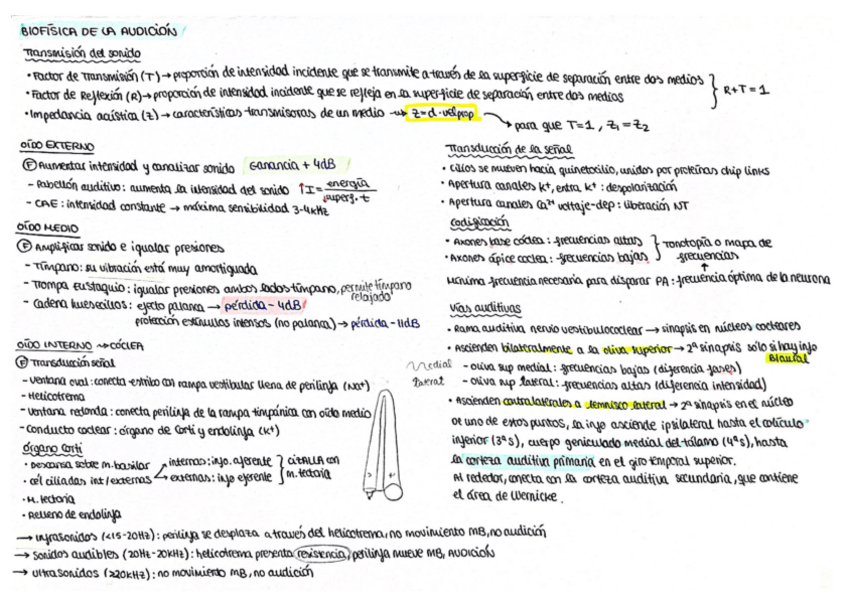 BIOFÍSICA DE LA AUDICIÓN
Transmisión del sonido
• Factor de Transmisión (T) → proporción de intensidad incidente que se transmite a través de la superficie de separación entre dos medios
• Factor de Reflexión (R) → proporción de intensidad incidente que se refleja en la superficie de separación entre dos medios
} R+T=1
• Impedancia acústica (Z) → características transmisoras de un medio → Z=d·vel prop
para que T=1, Z1=Z2
OÍDO EXTERNO
(F) Aumentar intensidad y canalizar sonido Ganancia + 4dB
- Pabellón auditivo: aumenta la intensidad del sonido ↑I = energía / ↓superf. · t
- CAE: intensidad constante → máxima sensibilidad 3-4kHz
OÍDO MEDIO
(F) Amplificar sonido e igualar presiones
- Tímpano: su vibración está muy amortiguada
- Trompa Eustaquio: igualar presiones ambos lados tímpano, permite tímpano relajado
- Cadena huesecillos: efecto palanca → pérdida - 4dB
protección estímulos intensos (no palanca) → pérdida - 11dB
OÍDO INTERNO → CÓCLEA
(F) Transducción señal
- Ventana oval: conecta estribo con rampa vestibular llena de perilinfa (Na+)
- Helicotrema
- Ventana redonda: conecta perilinfa de la rampa timpánica con oído medio
- Conducto coclear: órgano de Corti y endolinfa (K+)
Órgano Corti
• Descansa sobre m. basilar
• Cél ciliadas int/externas
internas: info. aferente
externas: info eferente
} cizalla con m. tectoria
• M. tectoria
• Relleno de endolinfa
→ Infrasonidos (<15-20Hz): perilinfa se desplaza a través del helicotrema, no movimiento MB, no audición
→ Sonidos audibles (20Hz-20kHz): helicotrema presenta resistencia, perilinfa mueve MB, AUDICIÓN
→ Ultrasonidos (≥20kHz): no movimiento MB, no audición
Transducción de la señal
• Cilios se mueven hacia quinetocilio, unidos por proteínas chip links
• Apertura canales K+, entra K+: despolarización
• Apertura canales Ca2+ voltaje-dep: liberación NT
Codificación
• Axones base cóclea: frecuencias altas
• Axones ápice cóclea: frecuencias bajas
} Tonotopía o mapa de frecuencias
Mínima frecuencia necesaria para disparar PA: frecuencia óptima de la neurona
Vías auditivas
• Rama auditiva nervio vestibulococlear → sinapsis en núcleos cocleares
• Ascienden bilateralmente a la oliva superior → 2ª sinapsis sólo si hay info Biaural
Medial - oliva sup medial: frecuencias bajas (diferencia fases)
Lateral - oliva sup lateral: frecuencias altas (diferencia intensidad)
• Ascienden contralaterales a lemnisco lateral → 2ª sinapsis en el núcleo
De uno de estos puntos, la info asciende ipsilateral hasta el colículo
inferior (3ªs), cuerpo geniculado medial del tálamo (4ªs), hasta
la corteza auditiva primaria en el giro temporal superior.
Al rededor, conecta con la corteza auditiva secundaria, que contiene
el área de Wernicke.